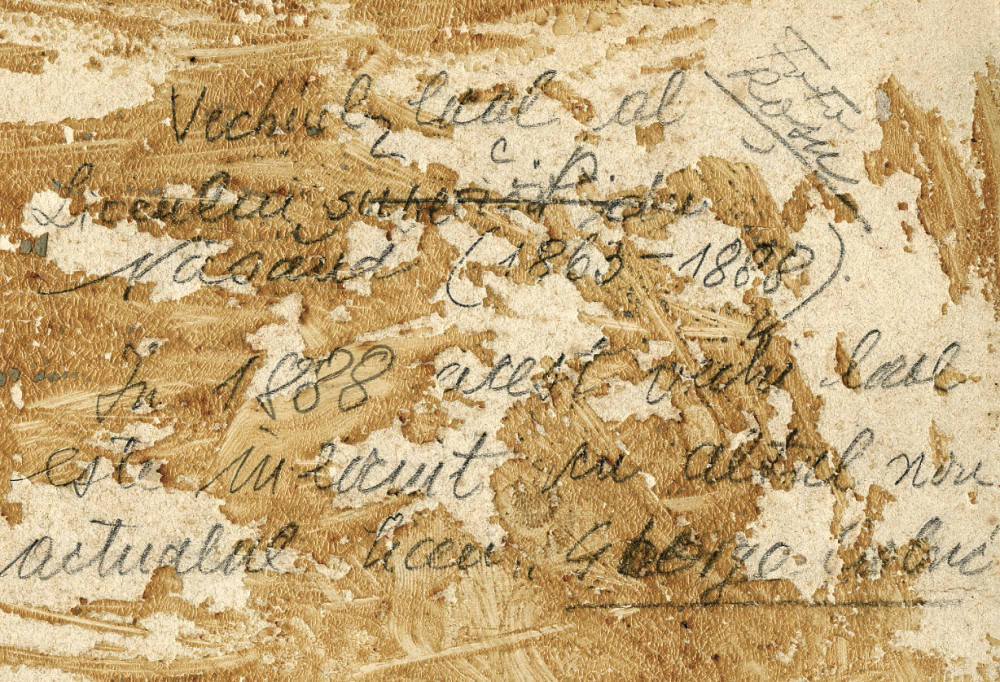 Vechiul local al
Liceului superior din
Năsăud (1863-1888).
În 1888 acest vechi local
este înlocuit cu altul nou
actualul liceu „George Coșbuc